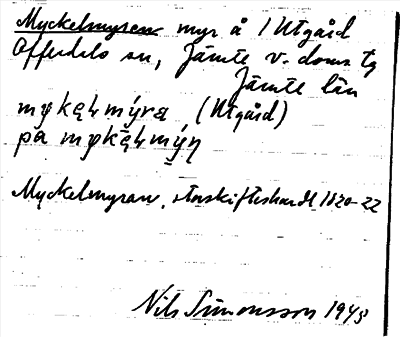 Myckelmyren myr å / Utgård
Offerdals sn, Jämtl. v. doms. tg
Jämtl. län
mykęɬmýræ (Utgård)
på mykęɬmýn
Myckelmyran, storskifteshandl. 1820-22
Nils Simonsson 1943